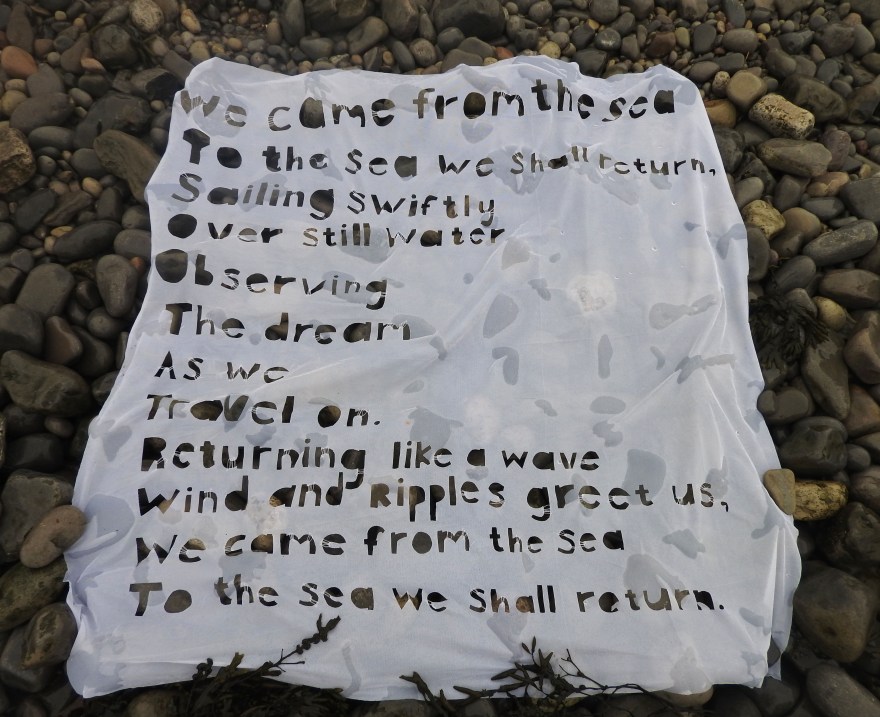 We came from the sea
To the Sea we Shall return,
Sailing swiftly
Over still water
Observing
The dream
As we
Travel on.
Returning like a wave
Wind and Ripples greet us,
We came from the sea
To the sea we shall return.